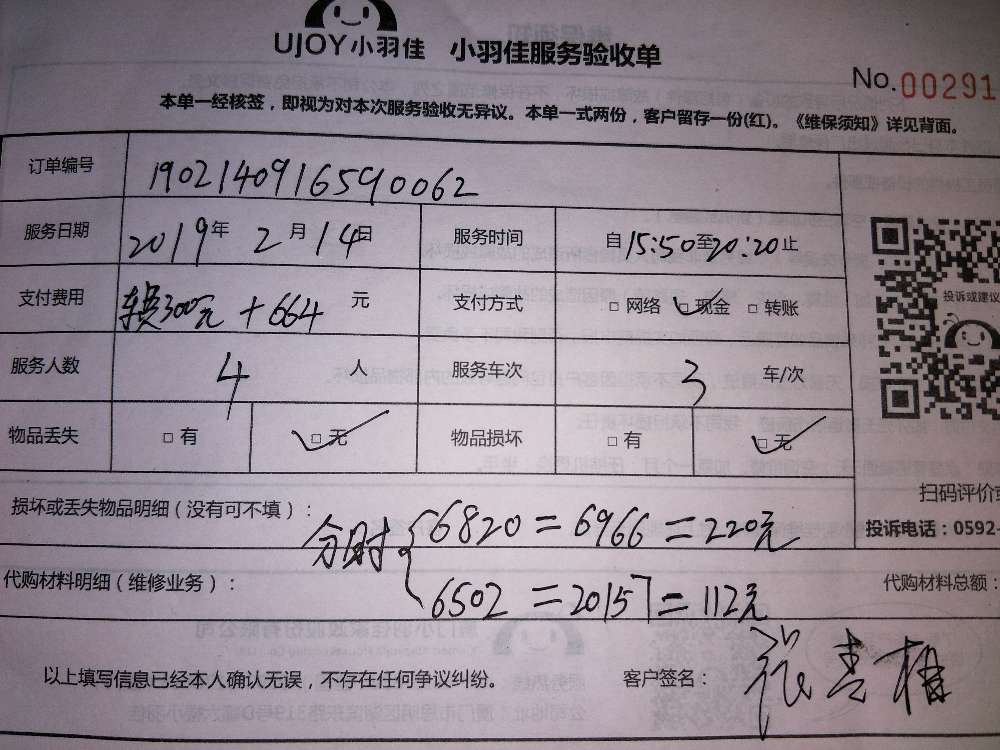 UJOY小羽佳 小羽佳服务验收单
No.00291
本单一经核签，即视为对本次服务验收无异议。本单一式两份，客户留存一份(红)。《维保须知》详见背面。
订单编号 190214091659 0062
服务日期 2019年2月14日 服务时间 自15:50至20:20止
支付费用 车费300元+664元 支付方式 □网络 ☑现金 □转账
投诉或建议
服务人数 4人 服务车次 3车/次
物品丢失 □有 ☑无 物品损坏 □有 ☑无
扫码评价或
损坏或丢失物品明细（没有可不填）：
分时 66820=6966=220元
投诉电话：0592-
代购材料明细（维修业务）： 代购材料总额：
6502=20157=112元
以上填写信息已经本人确认无误，不存在任何争议纠纷。 客户签名：